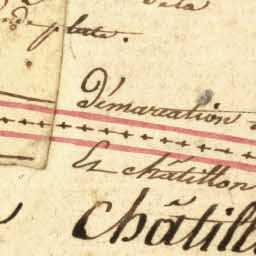 de la
plate.
Démarcation
Et châtillon
châtill